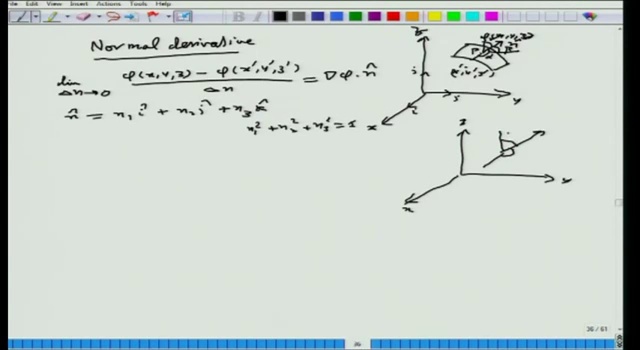 File Edit View Insert Actions Tools Help
Normal derivative
lim Δn→0 φ(x,y,z) - φ(x',y',z') / Δn = ∇φ·n̂
n̂ = n₁ î + n₂ ĵ + n₃ k̂
n₁² + n₂² + n₃² = 1
z
φ(x,y,z)
(x',y',z')
j
i
x
y
z
x
y
36 / 61
36